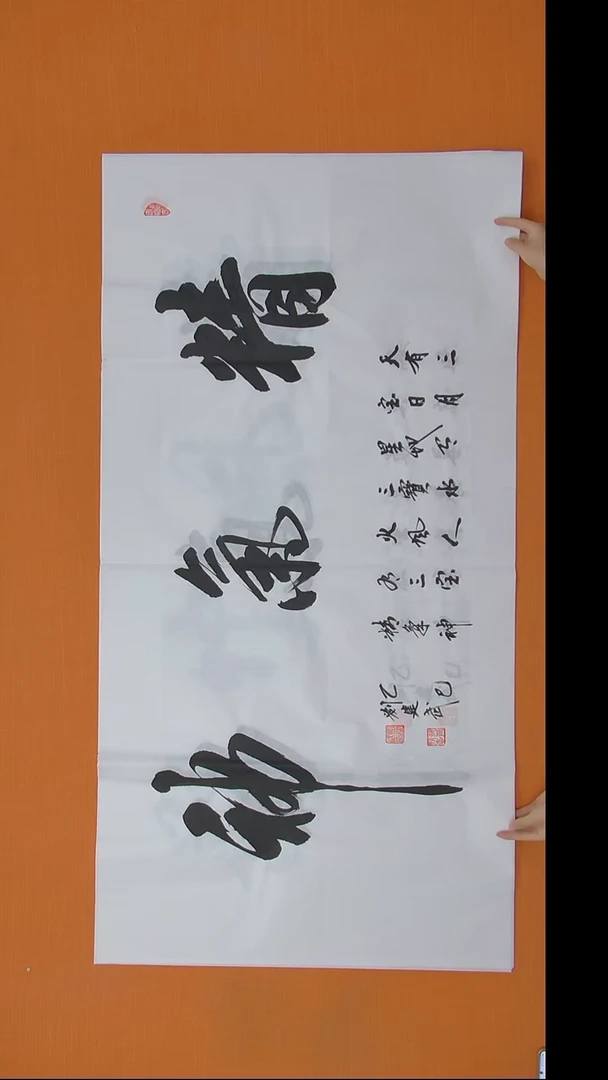 精氣神
天有三
宝日月
星地有
三寳水
火风人
有三宝
精气神
乙巳
劉建武